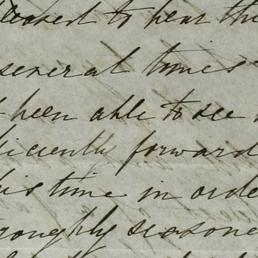 pleased to hear thi
several times
been able to see
ficiently forward
his time in orde
roughly seasone